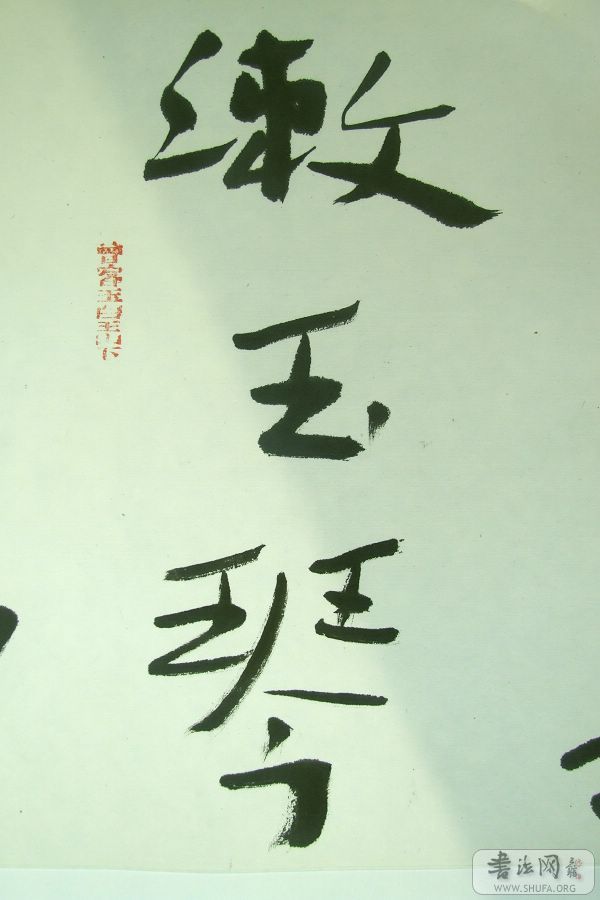 漱
玉
琴
书法网
WWW.SHUFA.ORG